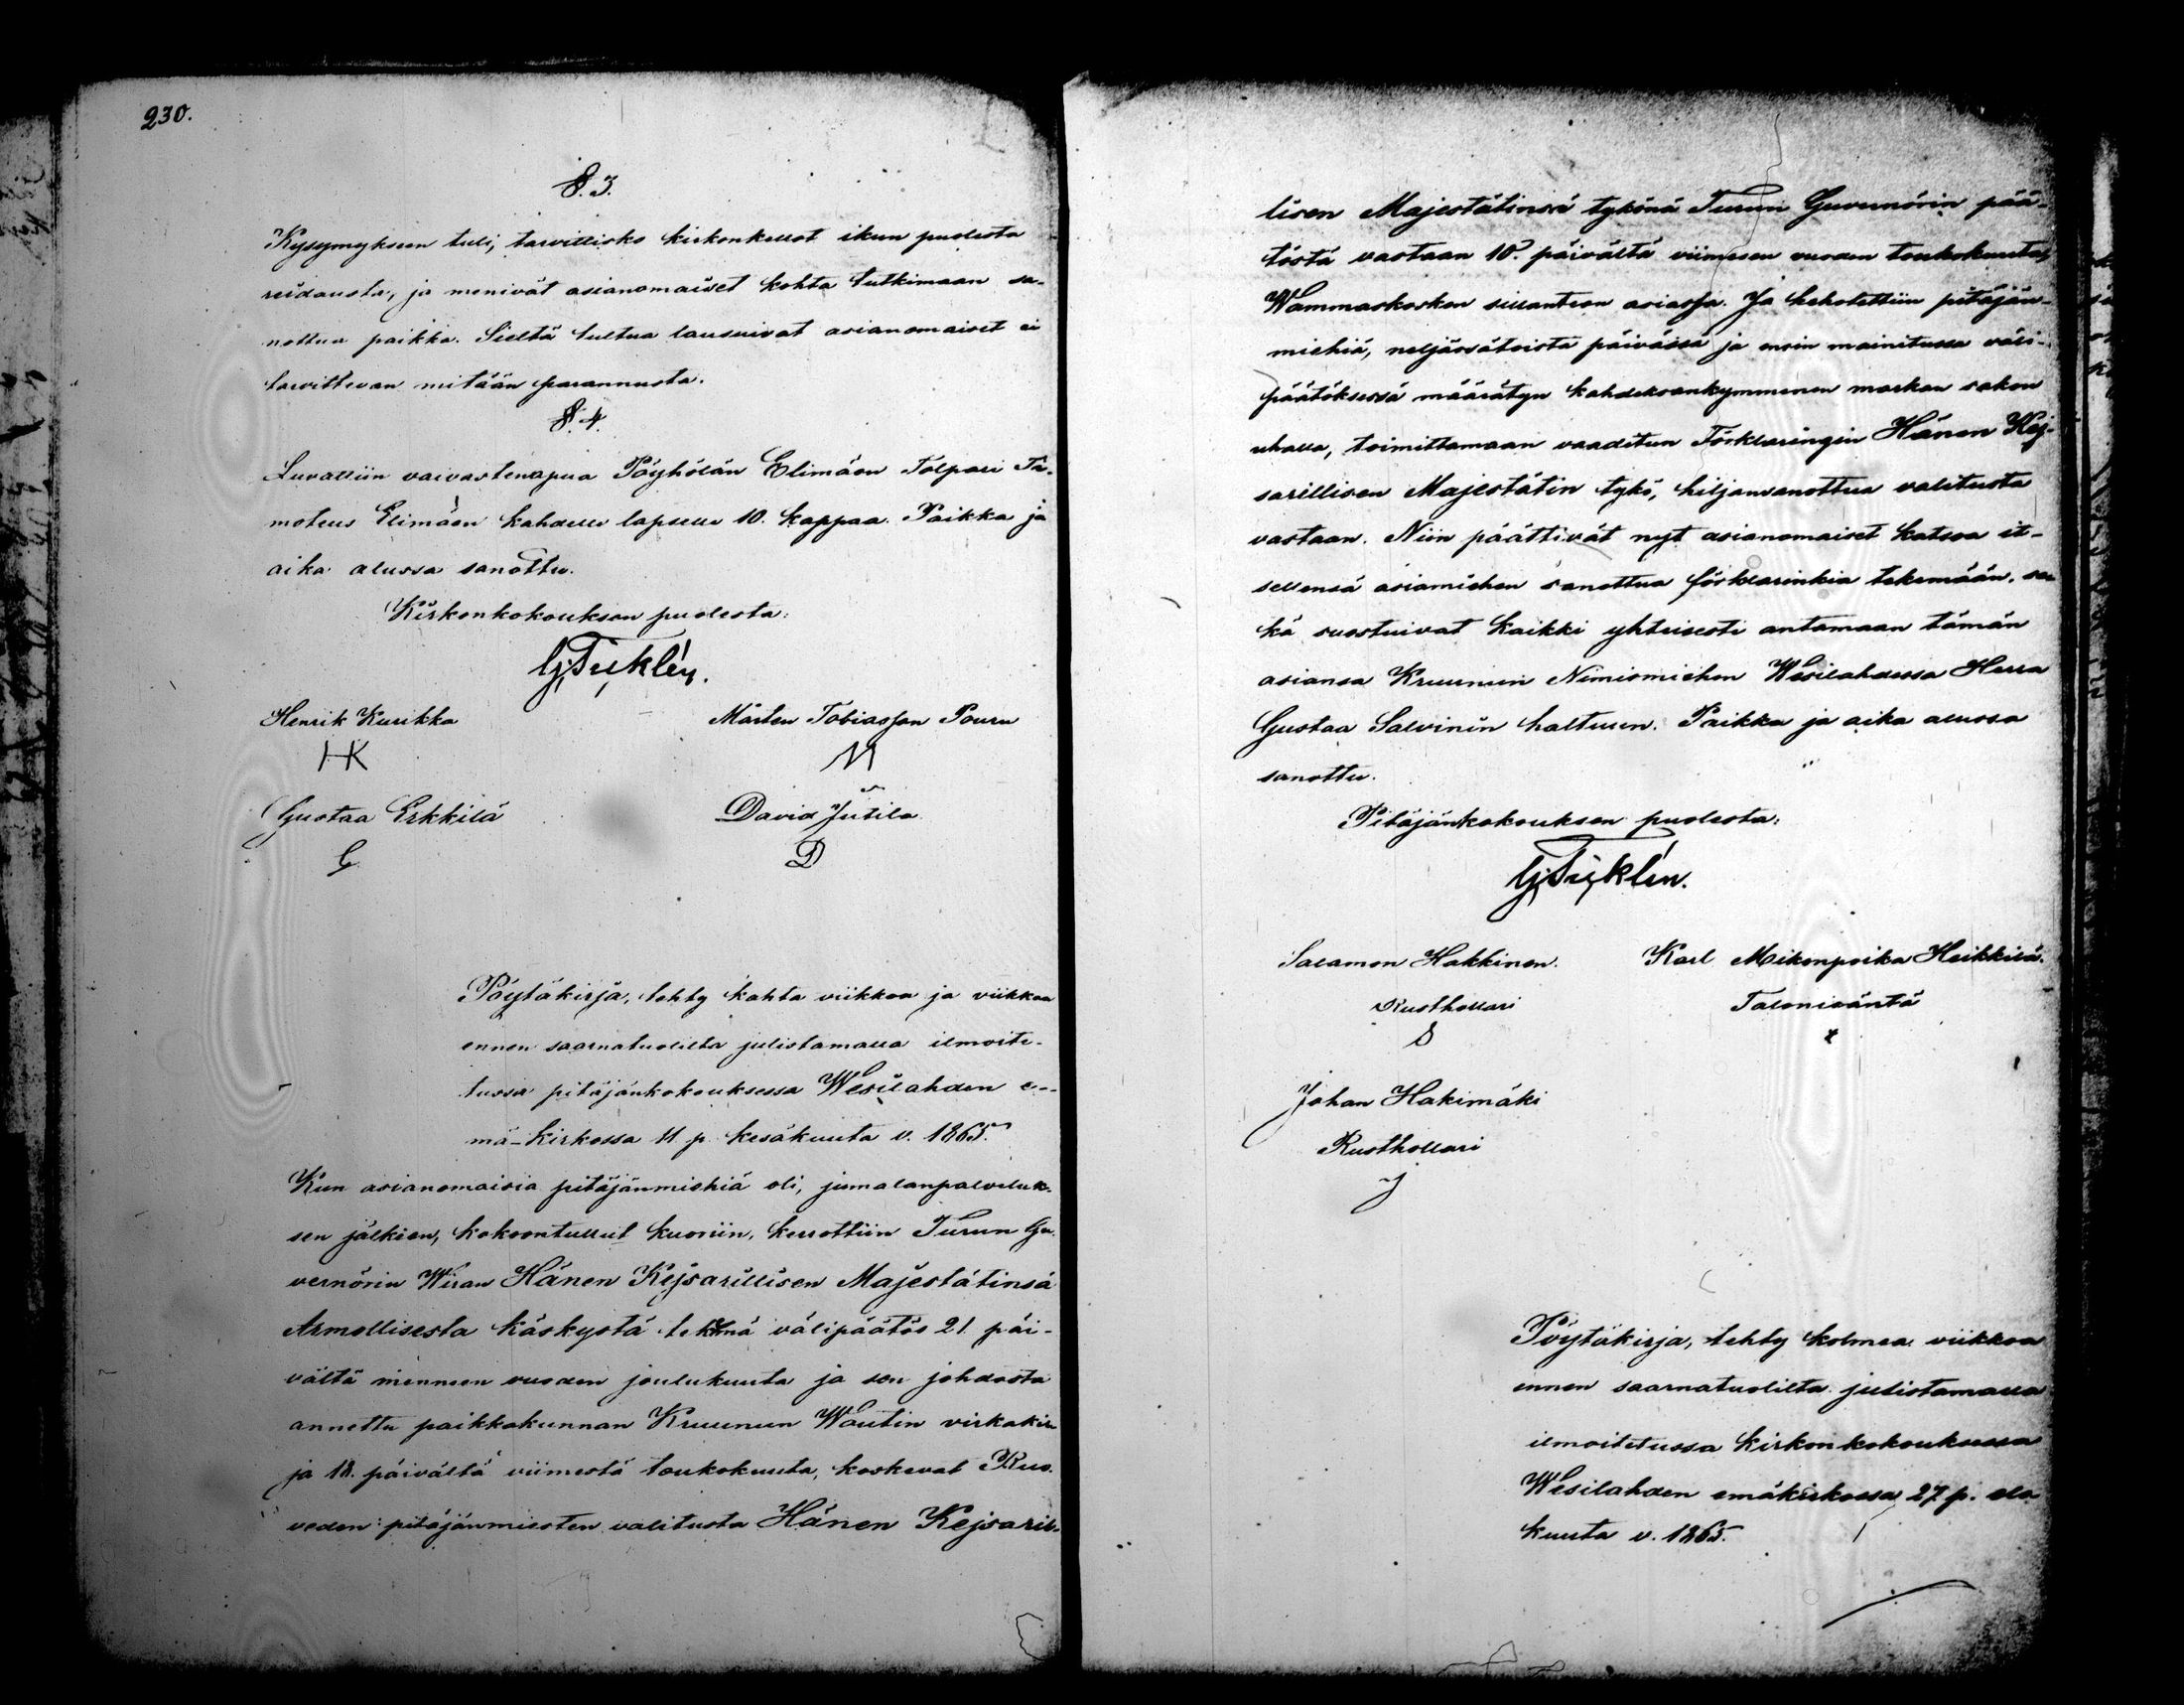 230.
§. 3.
Kysymykseen tuli, tarvittisko kirkonkellot ikun puolesta
reidausta, ja menivät asianomaiset kohta tutkimaan sa-
nottua paikka. Sieltä tultua lausuivat asianomaiset ei
tarvittevan mitään parannusta.
§. 4.
Luvattiin vaivastenapua Pöyhölän Elimäen Tolpari Ta-
moteus Elimäen kahdelle lapselle 10. kappaa. Paikka ja
aika alussa sanottu.
Kirkonkokouksen puolesta:
G. Tuklén.
Henrik Kurikka Mårten Tobiasson Pouru
HK M
Gustaa Erkkilä David Jutila
G D
Pöytäkirja, tehty kahta viikkoa ja viikkoa
ennen saarnatuolilta julistamalla ilmoite-
tussa pitäjänkokouksessa Wesilahden e-
mä-kirkossa 11 p. kesäkuuta v. 1865.
Kun asianomaisia pitäjänmiehiä oli, jumalanpalveluk-
sen jälkeen, kokoontullut kuoriin, kerrottiin Turun Gu-
vernörin Wiran Hänen Kejsarillisen Majestätinsä
Armollisesta käskystä tekemä välipäätös 21 päi-
vältä mennen vuoden joulukuuta ja sen johdosta
annettu paikkakunnan Kruunun Woutin virkakir-
ja 18. päivältä viimestä toukokuuta, koskevat Ruo-
veden pitäjänmiesten valitusta Hänen Kejsaril-
lisen Majestätinsä tykönä Turun Guvernörin pää-
töstä vastaan 10. päivältä viimesen vuoden toukokuuta,
Wammaskosken sillanteon asiassa. Ja kehotettiin pitäjän-
miehiä, neljässätoista päivässä ja ensin mainitussa väli-
päätöksessä määrätyn kahdeksankymmenen markan sakon
uhalla, toimittamaan vaaditun Förklaringin Hänen Kej-
sarillisen Majestätin tykö, hiljansanottua valitusta
vastaan. Niin päättivät nyt asianomaiset katsoa it-
sellensä asiamiehen sanottua förklarinkia tekemään, se-
kä suostuivat kaikki yhteisesti antamaan tämän
asiansa Kruunun Nimismiehen Wesilahdessa Herra
Gustaa Salvinin haltuun. Paikka ja aika alussa
sanottu.
Pitäjänkokouksen puolesta:
G. Tuklén.
Salamon Hakkinen. Karl Mikonpoika Heikkilä.
Rusthollari Talonisäntä
S x
Johan Hakimäki
Rusthollari
J
Pöytäkirja, tehty kolmea viikkoa
ennen saarnatuolilta julistamalla
ilmoitetussa kirkonkokouksessa
Wesilahden emäkirkossa 27 p. elo
kuuta v. 1865.